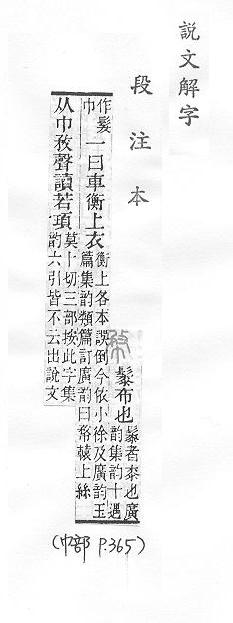 說文解字
段注本
䰍布也
䰍者桼也廣
韵集韵十遇
作髤
巾
一曰車衡上衣
衡上各本誤倒今依小徐及廣韵玉
篇集韵類篇訂廣韵曰㡔轅上絲
从巾敄聲讀若頊
莫卜切三部按此字集
韵六引皆不云出說文
(巾部 P.365)